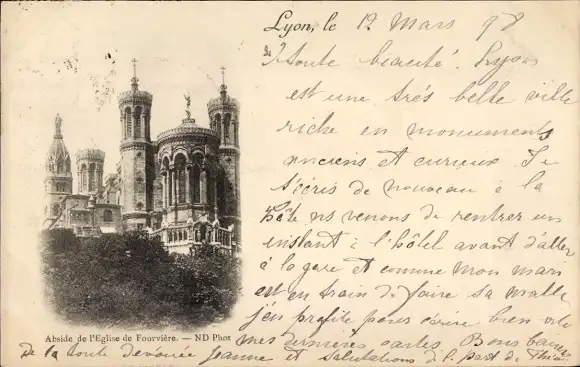 Lyon, le 12 Mars 98
de toute beauté. Lyon
est une très belle ville
riche en monuments
anciens et curieux. Je
t'écris de nouveau à la
hâte ns venons de rentrer un
instant à l'hôtel avant d'aller
à la gare et comme mon mari
est en train de faire sa malle
j'en profite pour écrire bien vite
mes dernières cartes. Bons baisers
de la toute dévouée Jeanne et salutations d. l. part de
Abside de l'Eglise de Fourvière. — ND Phot